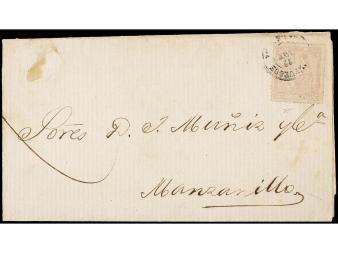 Sores D. J. Muñiz y Cª
Manzanillo